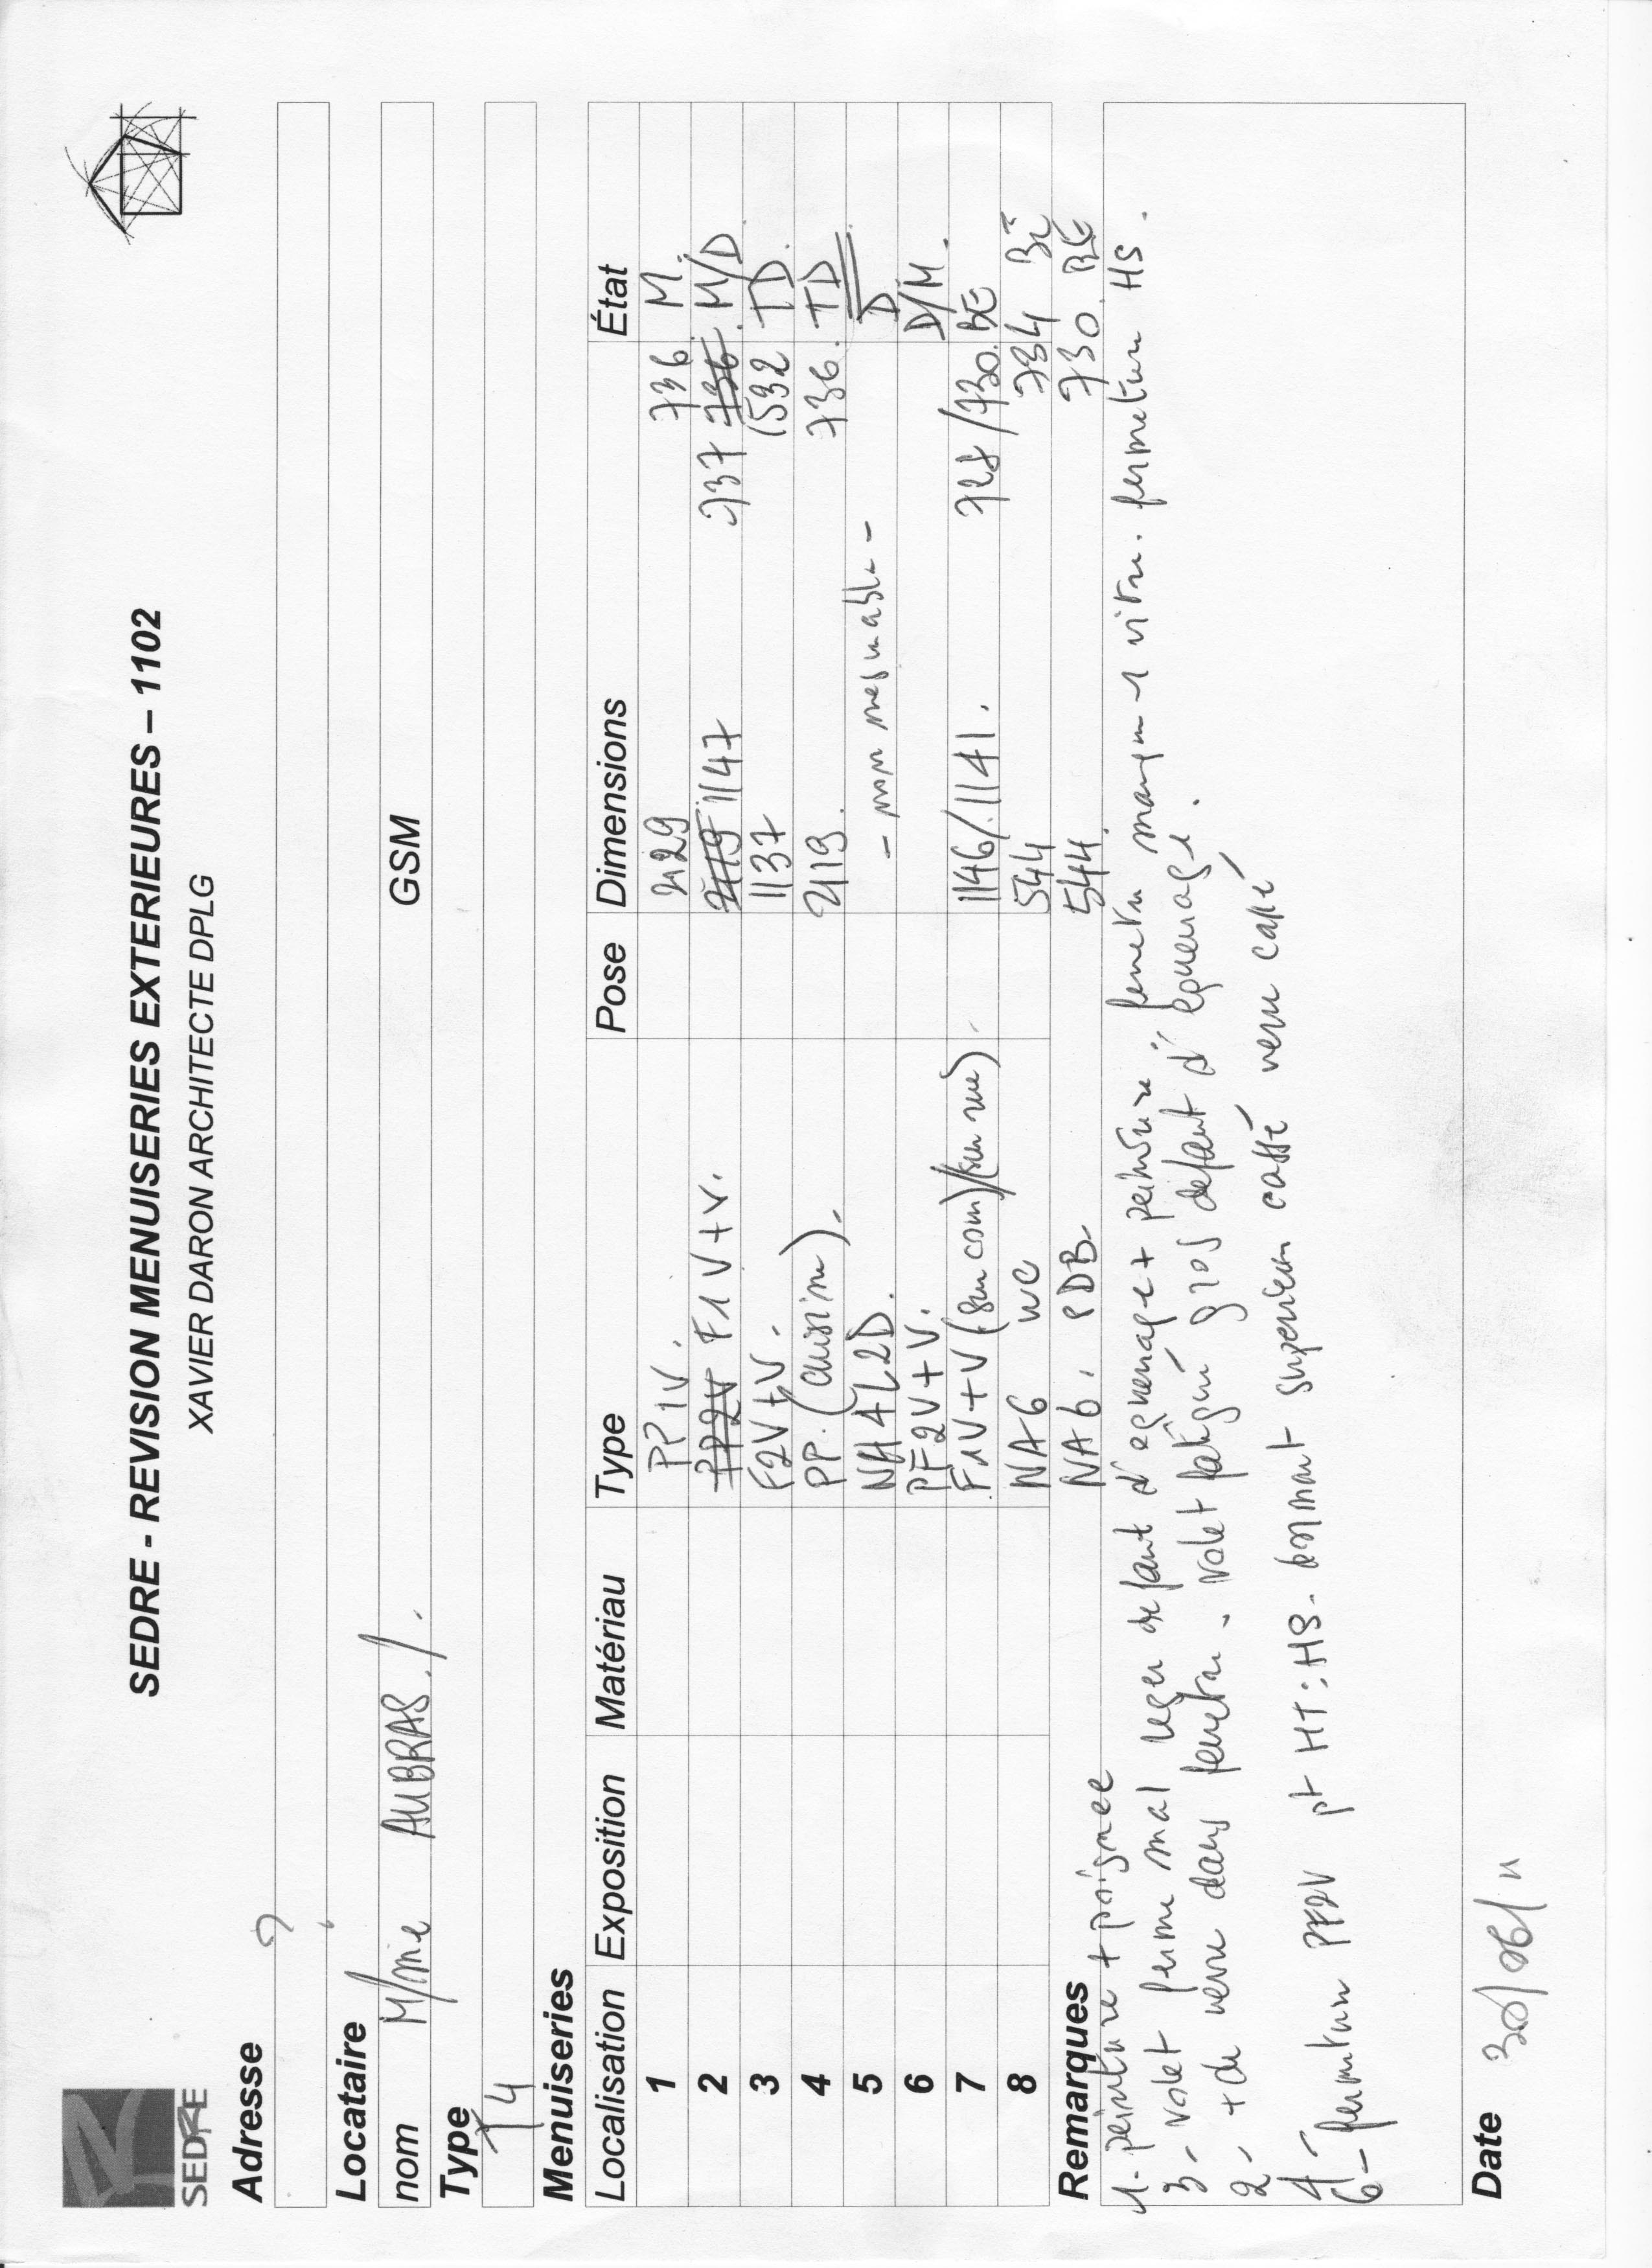 SEDRE
SEDRE - REVISION MENUISERIES EXTERIEURES – 1102
XAVIER DARON ARCHITECTE DPLG
Adresse
?
Locataire
nom M/me AUBRAS. GSM
Type
T4
Menuiseries
Localisation Exposition Matériau Type Pose Dimensions État
1 PP 1V. 2129 736 M.
2 PP2V F1V+V. 2119 1147 737 736. M/D
3 F2V+V. 1137 1532 TD.
4 PP. (cuisine). 2119. 736. TD
5 NA4L2D. - non mesurable - D
6 PF2V+V. D/M.
7 F1V+V (sur cour)/(sur rue). 1146/1141. 728/730. BE
8 NA6 WC 544 734 BE
NA6. SDB 544. 730. BE
Remarques
1- peinture + poignee
3- volet ferme mal leger defaut d'equerrage + peinture; fenetre manque 1 vitre. fermeture HS.
2- + de verre dans fenetre. volet fatigué gros defaut d'equerrage.
4-
6- fermeture PF2V pt HT: HS. tonnant superieur cassé verre cassé
Date 30/06/11